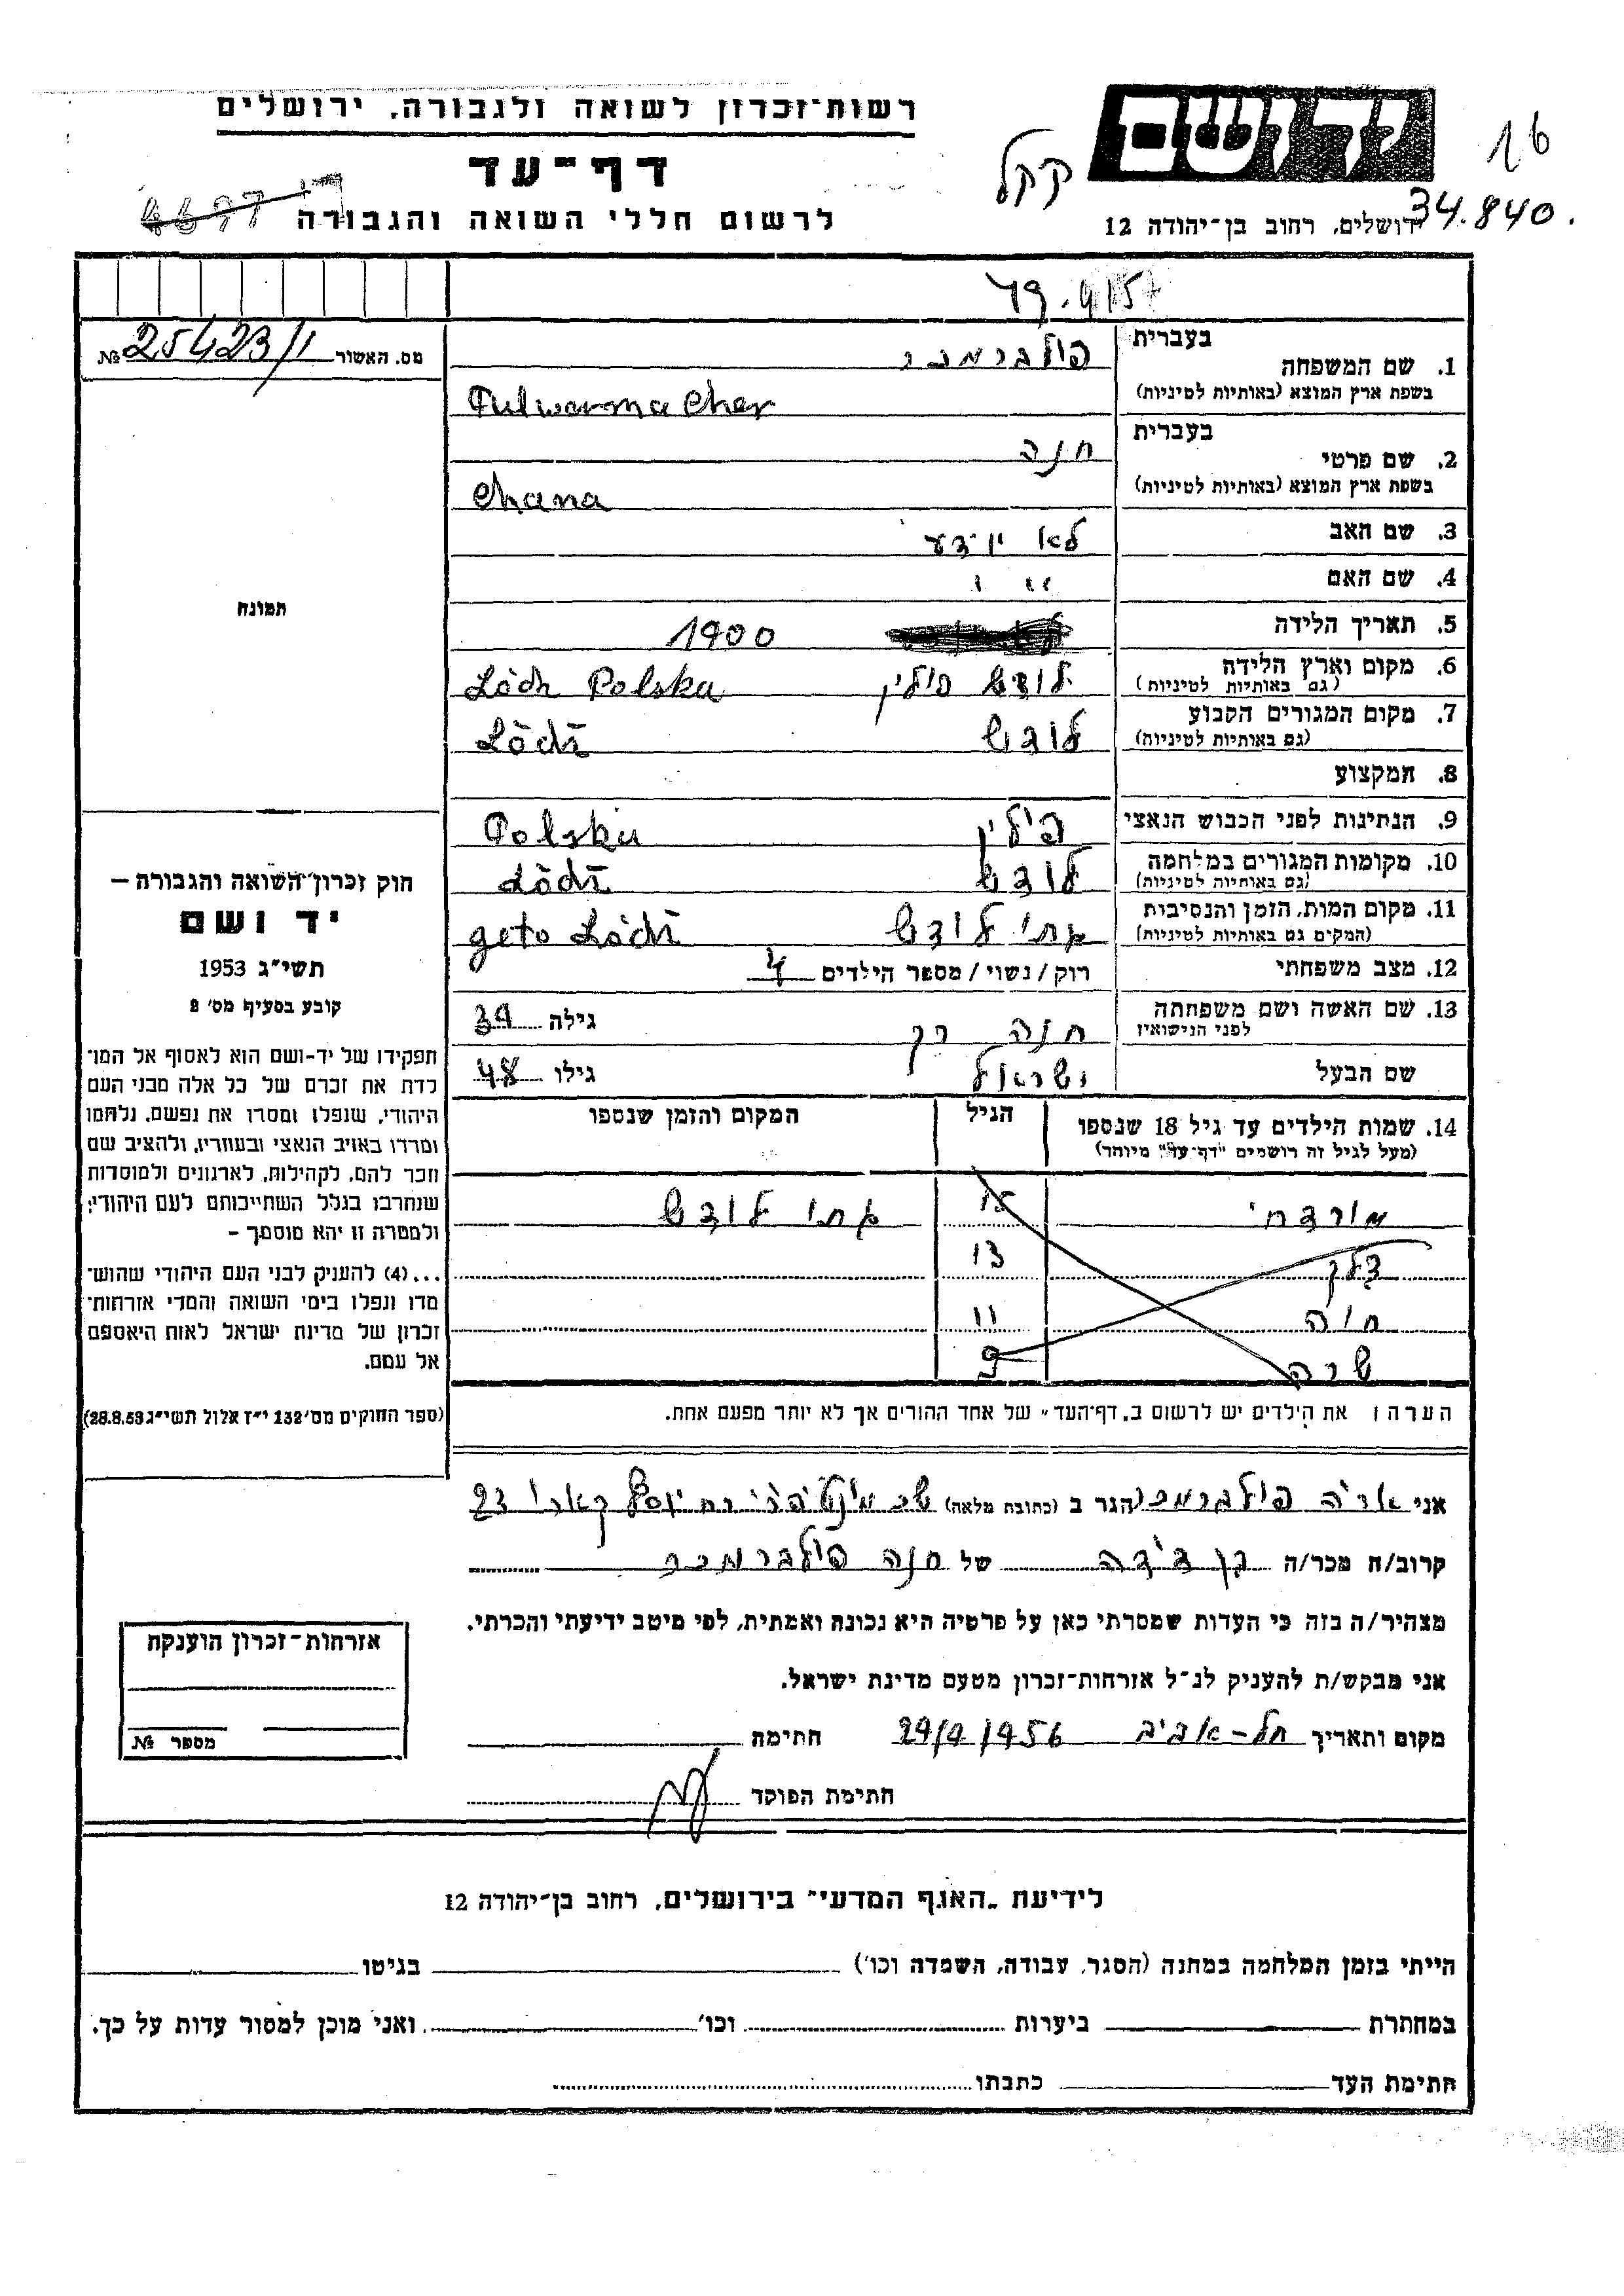 רשות־זכרון לשואה ולגבורה, ירושלים
יד ושם
16
דף־עד
קקל
4697
לרשום חללי השואה והגבורה
ירושלים, רחוב בן־יהודה 12
34.840.
מס. האשור № 25423/1
בעברית
1. שם המשפחה
פולברמכר
בשפת ארץ המוצא (באותיות לטיניות)
Fulwarmacher
בעברית
2. שם פרטי
חנה
בשפת ארץ המוצא (באותיות לטיניות)
Chana
3. שם האב
לא יודע
4. שם האם
" "
5. תאריך הלידה
1900
6. מקום וארץ הלידה
(גם באותיות לטיניות)
לודש פולין Lódz Polska
7. מקום המגורים הקבוע
(גם באותיות לטיניות)
לודש Lódź
8. המקצוע
9. הנתינות לפני הכבוש הנאצי
פולין Polska
10. מקומות המגורים במלחמה
(גם באותיות לטיניות)
לודש Lódź
11. מקום המות, הזמן והנסיבות
(המקום גם באותיות לטיניות)
גתו לודש geto Lódź
12. מצב משפחתי
רוק/נשוי/מספר הילדים 4
13. שם האשה ושם משפחתה
לפני הנישואין
חנה
גילה 39
שם הבעל
ישראל
גילו 48
14. שמות הילדים עד גיל 18 שנספו
(מעל לגיל זה רושמים "דף־עד" מיוחד)
הגיל
המקום והזמן שנספו
מורדחי 15 גתו לודש
13
חוה 11
שרה 9
הערה: את הילדים יש לרשום ב„דף־העד" של אחד ההורים אך לא יותר מפעם אחת.
תמונה
חוק זכרון־השואה והגבורה —
יד ושם
תשי״ג 1953
קובע בסעיף מס׳ 2
תפקידו של יד-ושם הוא לאסוף אל המו־
לדת את זכרם של כל אלה מבני העם
היהודי, שנפלו ומסרו את נפשם, נלחמו
ומרדו באויב הנאצי ובעוזריו, ולהציב שם
וזכר להם, לקהילות, לארגונים ולמוסדות
שנחרבו בגלל השתייכותם לעם היהודי;
ולמטרה זו יהא מוסמך –
...(4) להעניק לבני העם היהודי שהוש־
מדו ונפלו בימי השואה והמרי אזרחות־
זכרון של מדינת ישראל לאות היאספם
אל עמם.
(ספר החוקים מס׳132 י״ז אלול תשי״ג 28.8.53)
אני אריה פולברמכר הגר ב (כתובת מלאה) 23
קרוב/ה מכר/ה בן דודה של חנה פולברמכר
מצהיר/ה בזה כי העדות שמסרתי כאן על פרטיה היא נכונה ואמתית, לפי מיטב ידיעתי והכרתי.
אני מבקש/ת להעניק לנ״ל אזרחות־זכרון מטעם מדינת ישראל.
מקום ותאריך תל-אביב 29/4/1956 חתימה
חתימת הפוקד
אזרחות־זכרון הוענקה
מספר №
לידיעת „האגף המדעי" בירושלים, רחוב בן־יהודה 12
הייתי בזמן המלחמה במחנה (הסגר, עבודה, השמדה וכו׳) בגיטו
במחתרת ביערות וכו׳ ואני מוכן למסור עדות על כך.
חתימת העד כתבתו